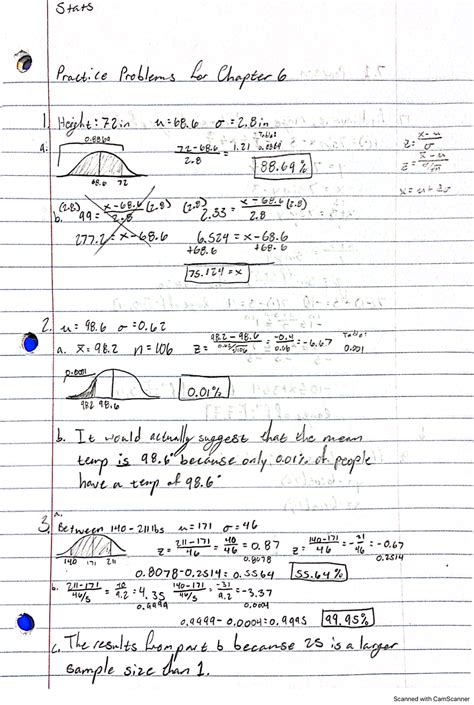 Stats
Practice Problems for Chapter 6
1. Height: 72in u=68.6 σ=2.8in
a. 0.8869 72-68.6/2.8 = 1.21 Table: 0.8869 88.69%
z = x-u/σ
z = x̄-u/σ/√n
68.6 72
x = u+zσ
b. (2.8) 99 = x-68.6/2.8 (2.8) (2.8) 2.33 = x-68.6/2.8 (2.8)
277.2 = x-68.6 6.524 = x-68.6
+68.6 +68.6
75.124 = x
2. u=98.6 σ=0.62
a. x̄=98.2 n=106 z = 98.2-98.6/0.62/√106 = -0.4/0.06 = -6.67 Table: 0.001
0.0001
98.2 98.6 0.01%
b. It would actually suggest that the mean
temp is 98.6° because only 0.01% of people
have a temp of 98.6°
3. a. Between 140-211lbs u=171 σ=46
z = 211-171/46 = 40/46 = 0.87 z = 140-171/46 = -31/46 = -0.67
140 171 211 0.8078 0.2514
0.8078-0.2514 = 0.5564 55.64%
b. 211-171/46/5 = 40/9.2 = 4.35 140-171/46/5 = -31/9.2 = -3.37
0.9999 0.0004
0.9999-0.0004=0.9995 99.95%
c. The results from part b because 25 is a larger
sample size than 1.
Scanned with CamScanner